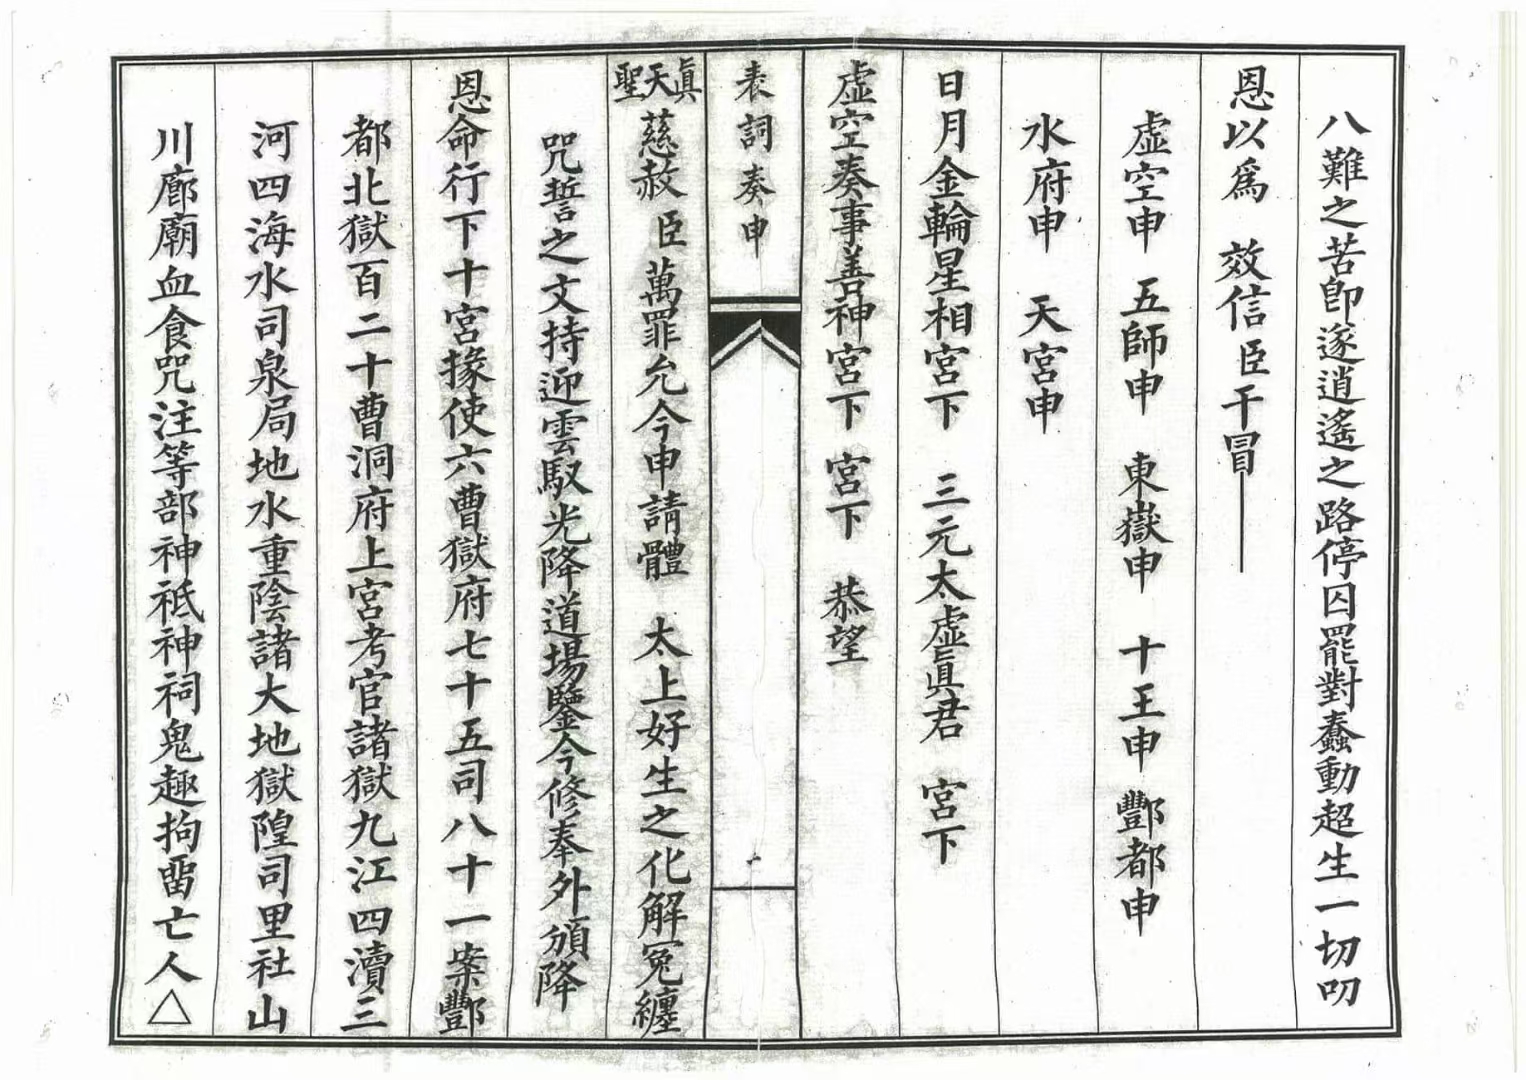 八難之苦卽遂逍遙之路停囚罷對蠢動超生一切叨
恩以爲　效信臣干冒
虛空申　五師申　東嶽申　十王申　酆都申
水府申　天宮申
日月金輪星相宮下　三元太虛眞君　宮下
虛空奏事善神宮下　宮下　恭望
表詞奏申
眞天聖慈赦臣萬罪允今申請體　太上好生之化解冤纏
咒誓之文持迎雲馭光降道場鑒今修奉外頒降
恩命行下十宮掾使六曹獄府七十五司八十一案酆
都北獄百二十曹洞府上宮考官諸獄九江四瀆三
河四海水司泉局地水重陰諸大地獄隍司里社山
川廊廟血食咒注等部神祇神祠鬼趣拘畱亡人△